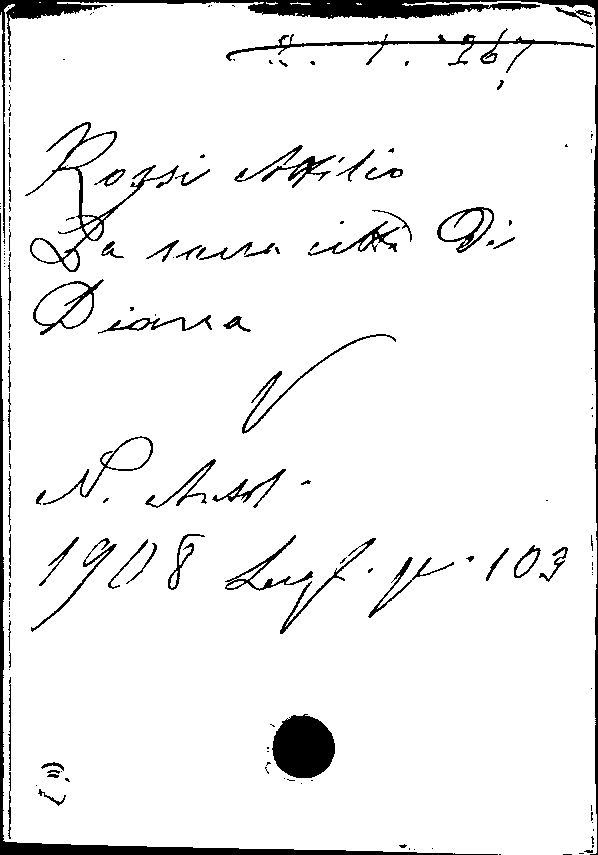 Rossi Attilio
La sacra città di
Diana
V
N. Antol.
1908 Lugl. p. 103